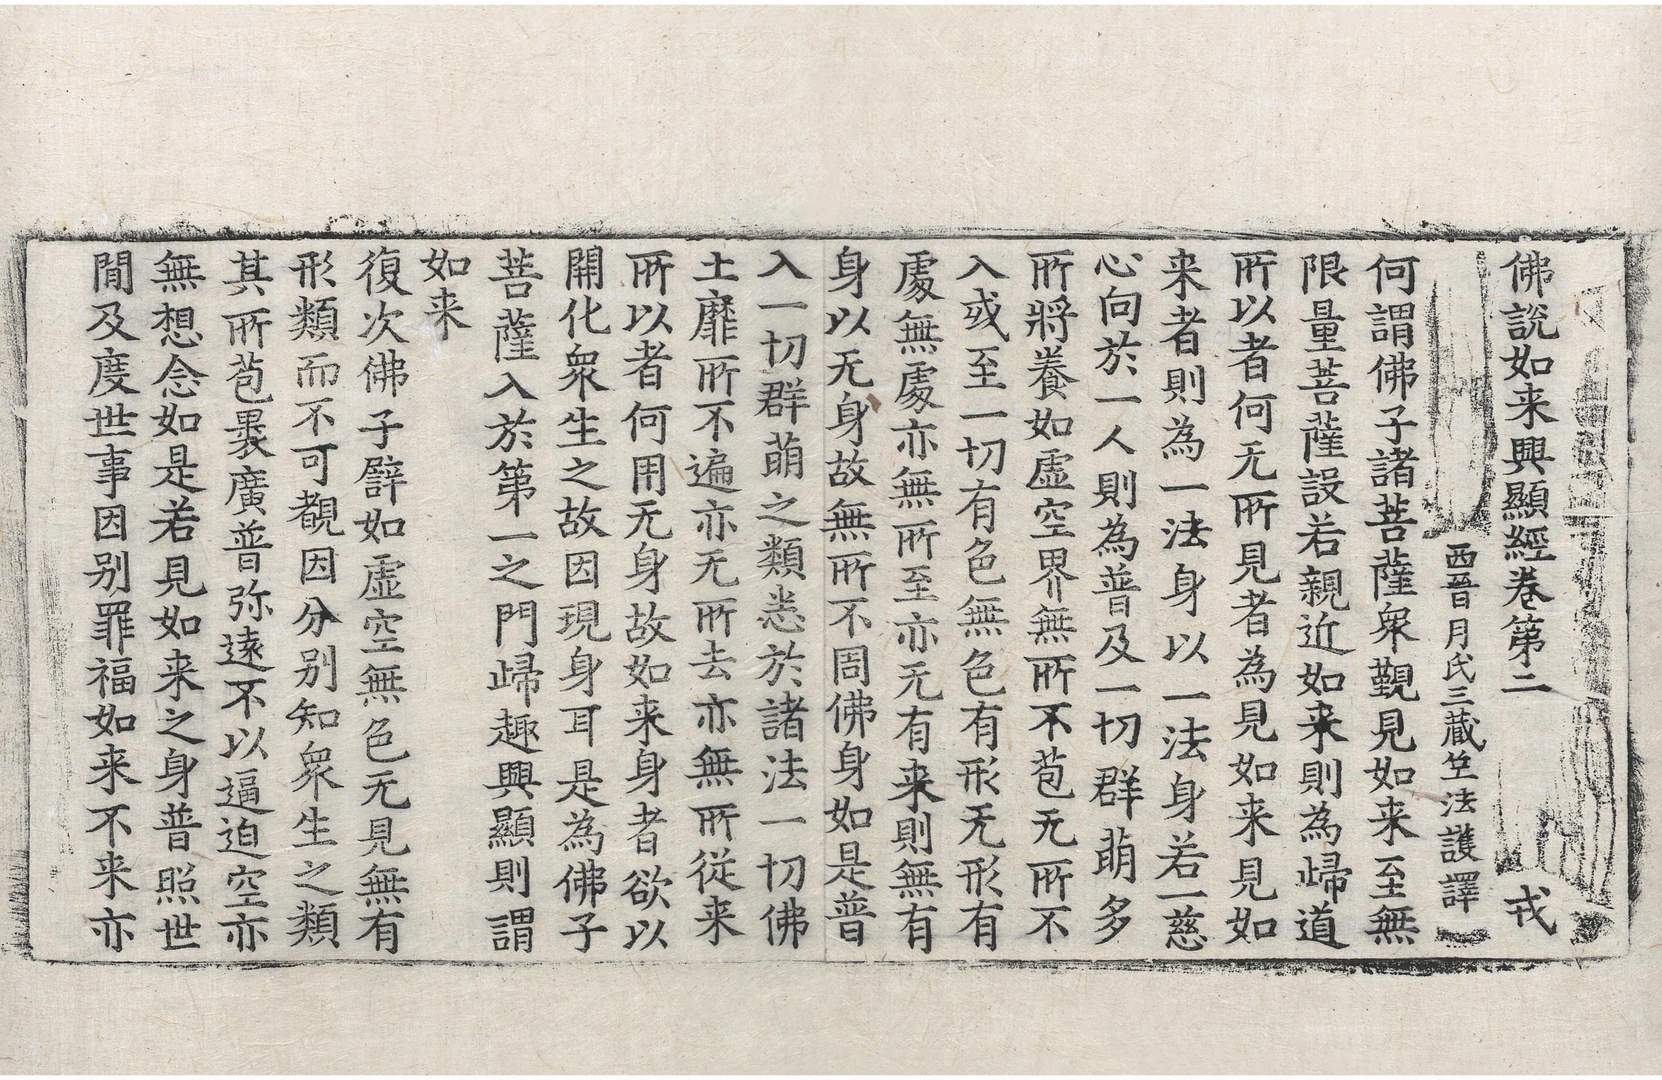 佛說如来興顯經卷第二　戎
西晉月氏三藏竺法護譯
何謂佛子諸菩薩衆覲見如来至無
限量菩薩設若親近如来則為歸道
所以者何无所見者為見如来見如
来者則為一法身以一法身若一慈
心向於一人則為普及一切群萌多
所將養如虛空界無所不苞无所不
入或至一切有色無色有形无形有
處無處亦無所至亦无有来則無有
身以无身故無所不周佛身如是普
入一切群萌之類悉於諸法一切佛
土靡所不遍亦无所去亦無所從来
所以者何用无身故如来身者欲以
開化衆生之故因現身耳是為佛子
菩薩入於第一之門歸趣興顯則謂
如来
復次佛子譬如虛空無色无見無有
形類而不可覩因分別知衆生之類
其所苞裹廣普弥遠不以逼迫空亦
無想念如是若見如来之身普照世
閒及度世事因别罪福如来不来亦